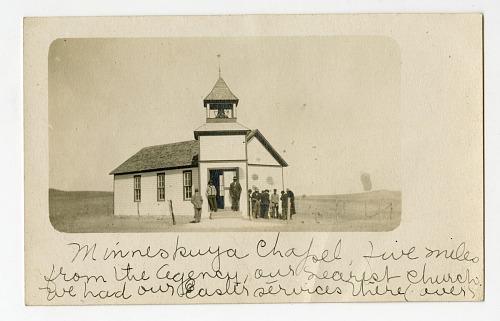 Minneskuya Chapel, five miles
from the agency, our nearest church.
We had our Easter services there (over)